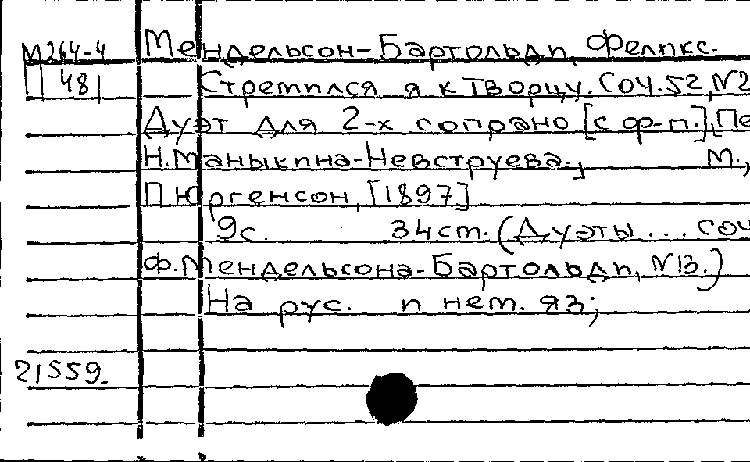 М264-4 Мендельсон-Бартольди, Феликс.
П 481 Стремился я к творцу. Соч.52, №2
Дуэт для 2-х сопрано [с ф-п.], Пе
Н.Маныкина-Невструева., М.,
П.Юргенсон, [1897]
9с. 34см. (Дуэты... соч
Ф.Мендельсона-Бартольди, №13.)
На рус. и нем. яз;
21559.